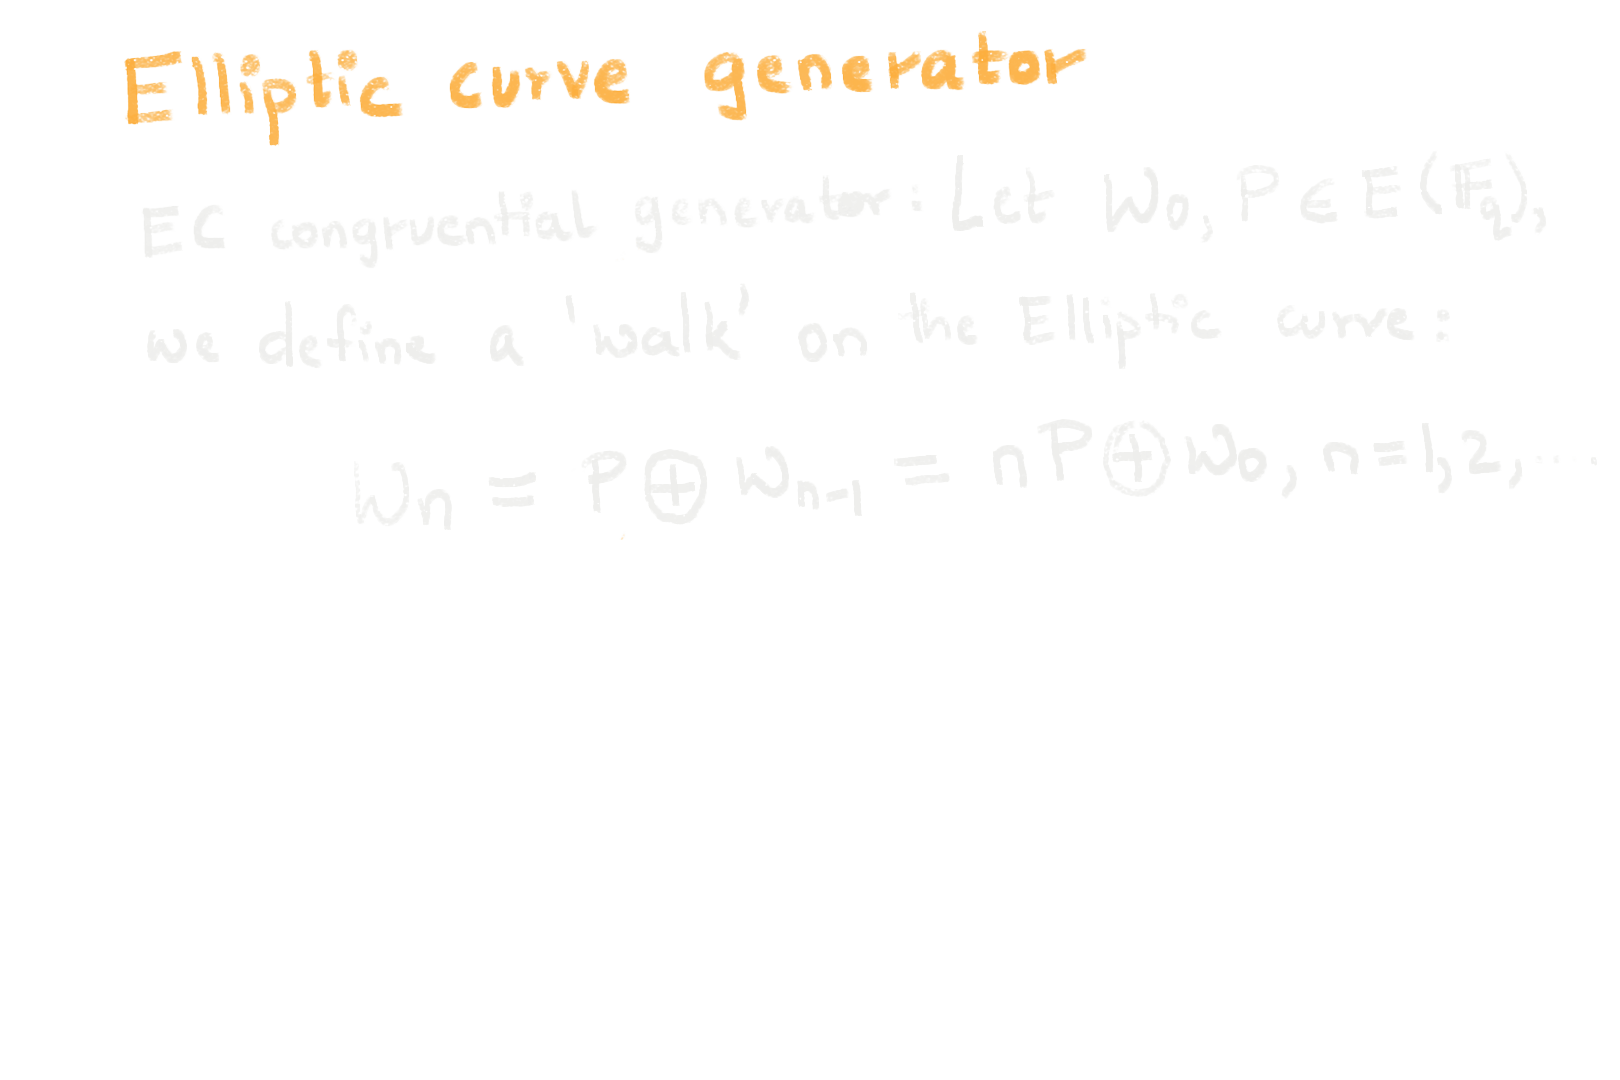 Elliptic curve generator
EC congruential generator: Let W₀, P ∈ E(𝔽_q),
we define a 'walk' on the Elliptic curve:
Wₙ = P ⊕ Wₙ₋₁ = nP ⊕ W₀, n=1,2, ....